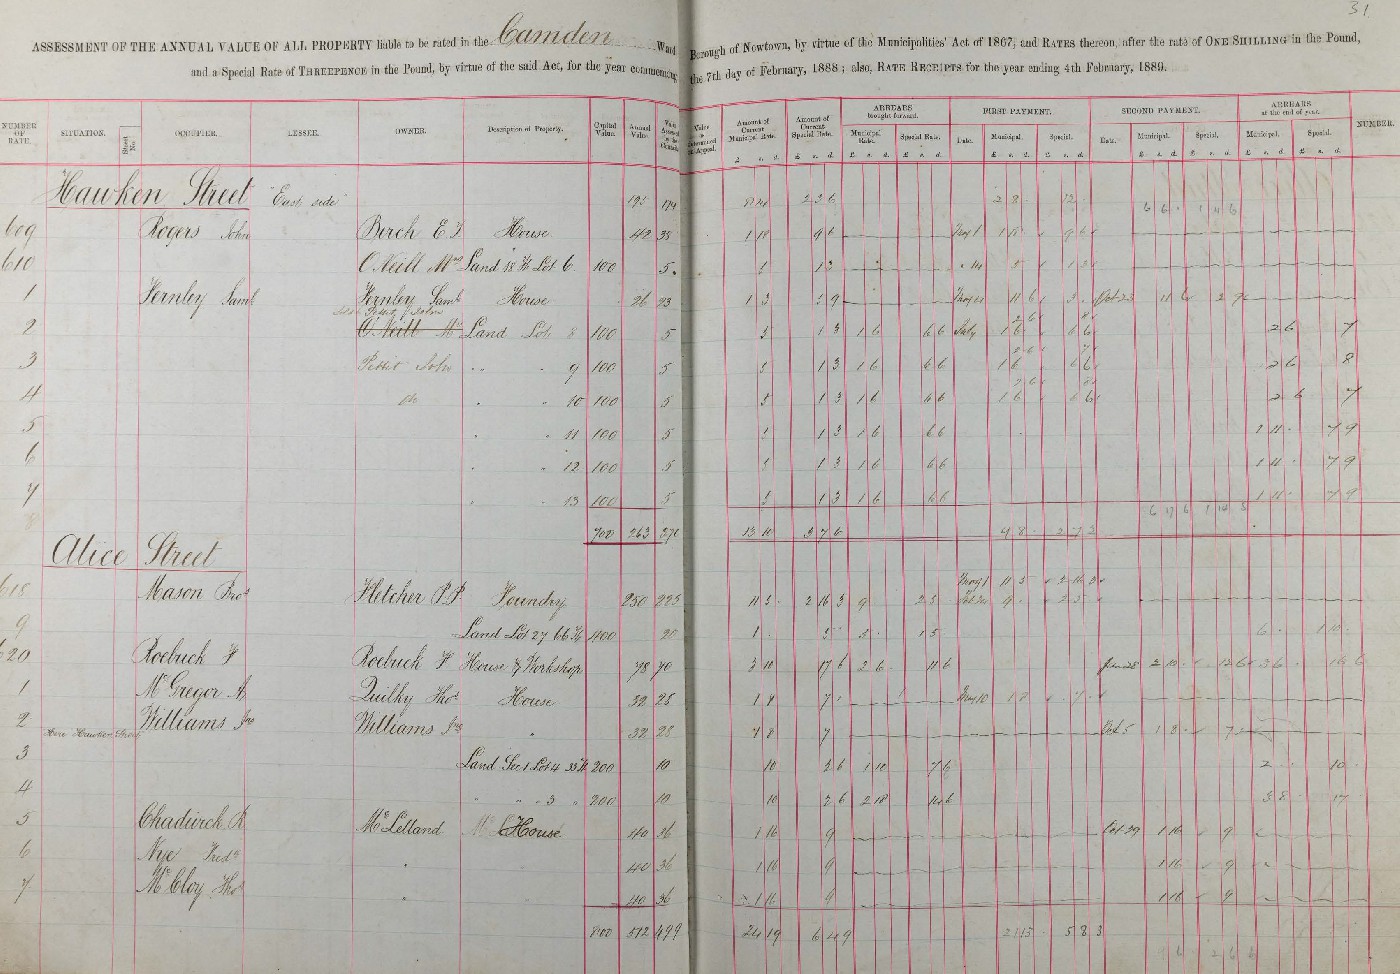 31
ASSESSMENT OF THE ANNUAL VALUE OF ALL PROPERTY liable to be rated in the Camden Ward Borough of Newtown, by virtue of the Municipalities' Act of 1867, and RATES thereon, after the rate of ONE SHILLING in the Pound,
and a Special Rate of THREEPENCE in the Pound, by virtue of the said Act, for the year commencing the 7th day of February, 1888; also, RATE RECEIPTS for the year ending 4th February, 1889.
NUMBER OF RATE. SITUATION. Street No. OCCUPIER. LESSEE. OWNER. Description of Property. Capital Value. Annual Value. Amount of Current Municipal Rate. Amount of Current Special Rate. ARREARS brought forward. Municipal Rate. Special Rate. FIRST PAYMENT. Date. Municipal. Special. SECOND PAYMENT. Date. Municipal. Special. ARREARS at the end of year. Municipal. Special. NUMBER.
Hawken Street "East side" 2 8 12
609 Rogers John Birch E House 42 38 1 18 9 6 May 1 1 18 9 6
610 O'Neill Mrs Land 18 ft Lot 6 100 5 5 1 3 14 5 1 3
1 Fernley Saml Fernley Saml House 26 23 1 3 5 9 11 6 3 Oct 23 11 6 2 9
2 O'Neill Mrs Land Lot 8 100 5 5 1 3 1 6 6 6 July 1 6 6 6 2 6 7
3 Pettit John " " 9 100 5 5 1 3 1 6 6 6 1 6 6 6 2 6 8
4 do " " 10 100 5 5 1 3 1 6 6 6 1 6 6 6 2 6 7
5 " " 11 100 5 5 1 3 1 6 6 6 1 11 7 9
6 " " 12 100 5 5 1 3 1 6 6 6 1 11 7 9
7 " " 13 100 5 5 1 3 1 6 6 6 1 11 7 9
700 263 270 13 10 3 7 6 9 8 2 7 3
Alice Street
618 Mason Bros Fletcher P.P Foundry 250 225 11 5 2 16 3 9 2 5 May 1 11 5 2 16 3
9 Land Lot 27 66 ft 400 20 1 5 5 1 5 6 1 10
620 Roebuck F Roebuck F House & Workshop 78 70 3 10 17 6 2 6 11 6 June 28 2 10 12 6 3 6 16 6
1 McGregor A Quilky Thos House 32 28 1 8 7 May 10 1 8 7
2 Here Hawken Street Williams Jno Williams Jno " 32 28 1 8 7 Oct 5 1 8 7
3 Land Sec 1 Lot 4 33 ft 200 10 10 2 6 1 10 7 6 2 10
4 " " " 3 " 200 10 10 2 6 2 18 14 6 3 8 17
5 Chadwick R McLelland House 40 36 1 16 9 Oct 29 1 16 9
6 Nye Fredk " 40 36 1 16 9 1 16 9
7 McCloy Thos " 40 36 1 16 9 1 16 9
800 512 499 24 19 6 4 9 21 13 5 8 3